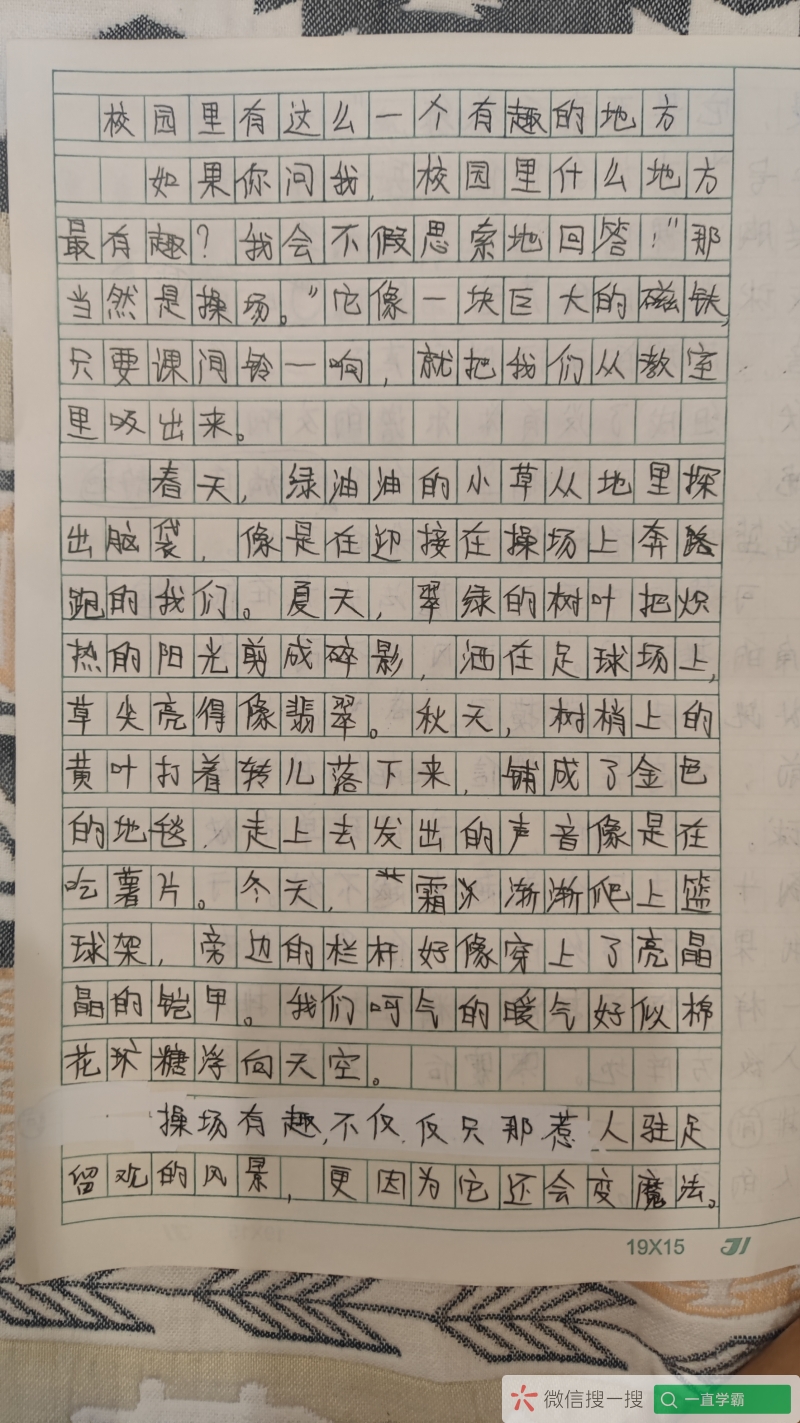 校园里有这么一个有趣的地方
如果你问我，校园里什么地方
最有趣？我会不假思索地回答："那
当然是操场。"它像一块巨大的磁铁，
只要课间铃一响，就把我们从教室
里吸出来。
春天，绿油油的小草从地里探
出脑袋，像是在迎接在操场上奔
跑的我们。夏天，翠绿的树叶把炽
热的阳光剪成碎影，洒在足球场上，
草尖亮得像翡翠。秋天，树梢上的
黄叶打着转儿落下来，铺成了金色
的地毯，走上去发出的声音像是在
吃薯片。冬天，霜冰渐渐爬上篮
球架，旁边的栏杆好像穿上了亮晶
晶的铠甲。我们呵气的暖气好似棉
花糖浮向天空。
操场有趣，不仅仅只那惹人驻足
留观的风景，更因为它还会变魔法。
19X15
微信搜一搜
一直学霸